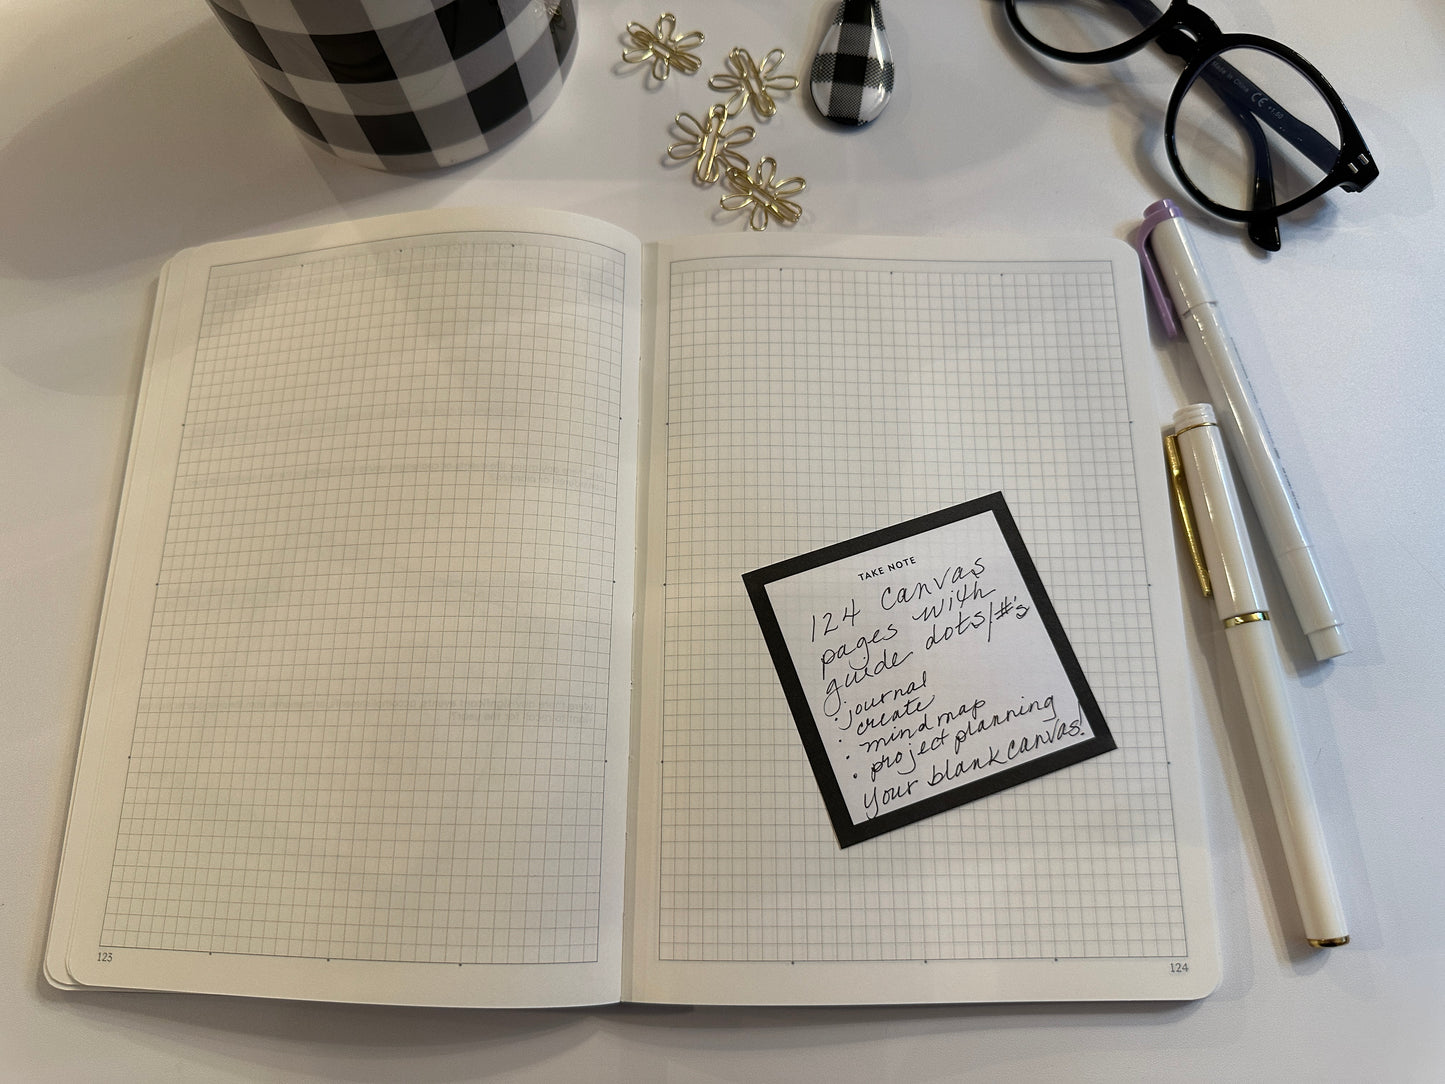 TAKE NOTE
124 canvas
pages with
guide dots/#'s
· journal
· create
· mind map
· project planning
your blank canvas!
123
124